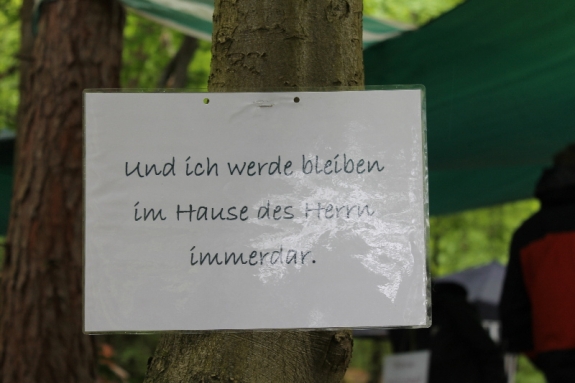 Und ich werde bleiben
im Hause des Herrn
immerdar.